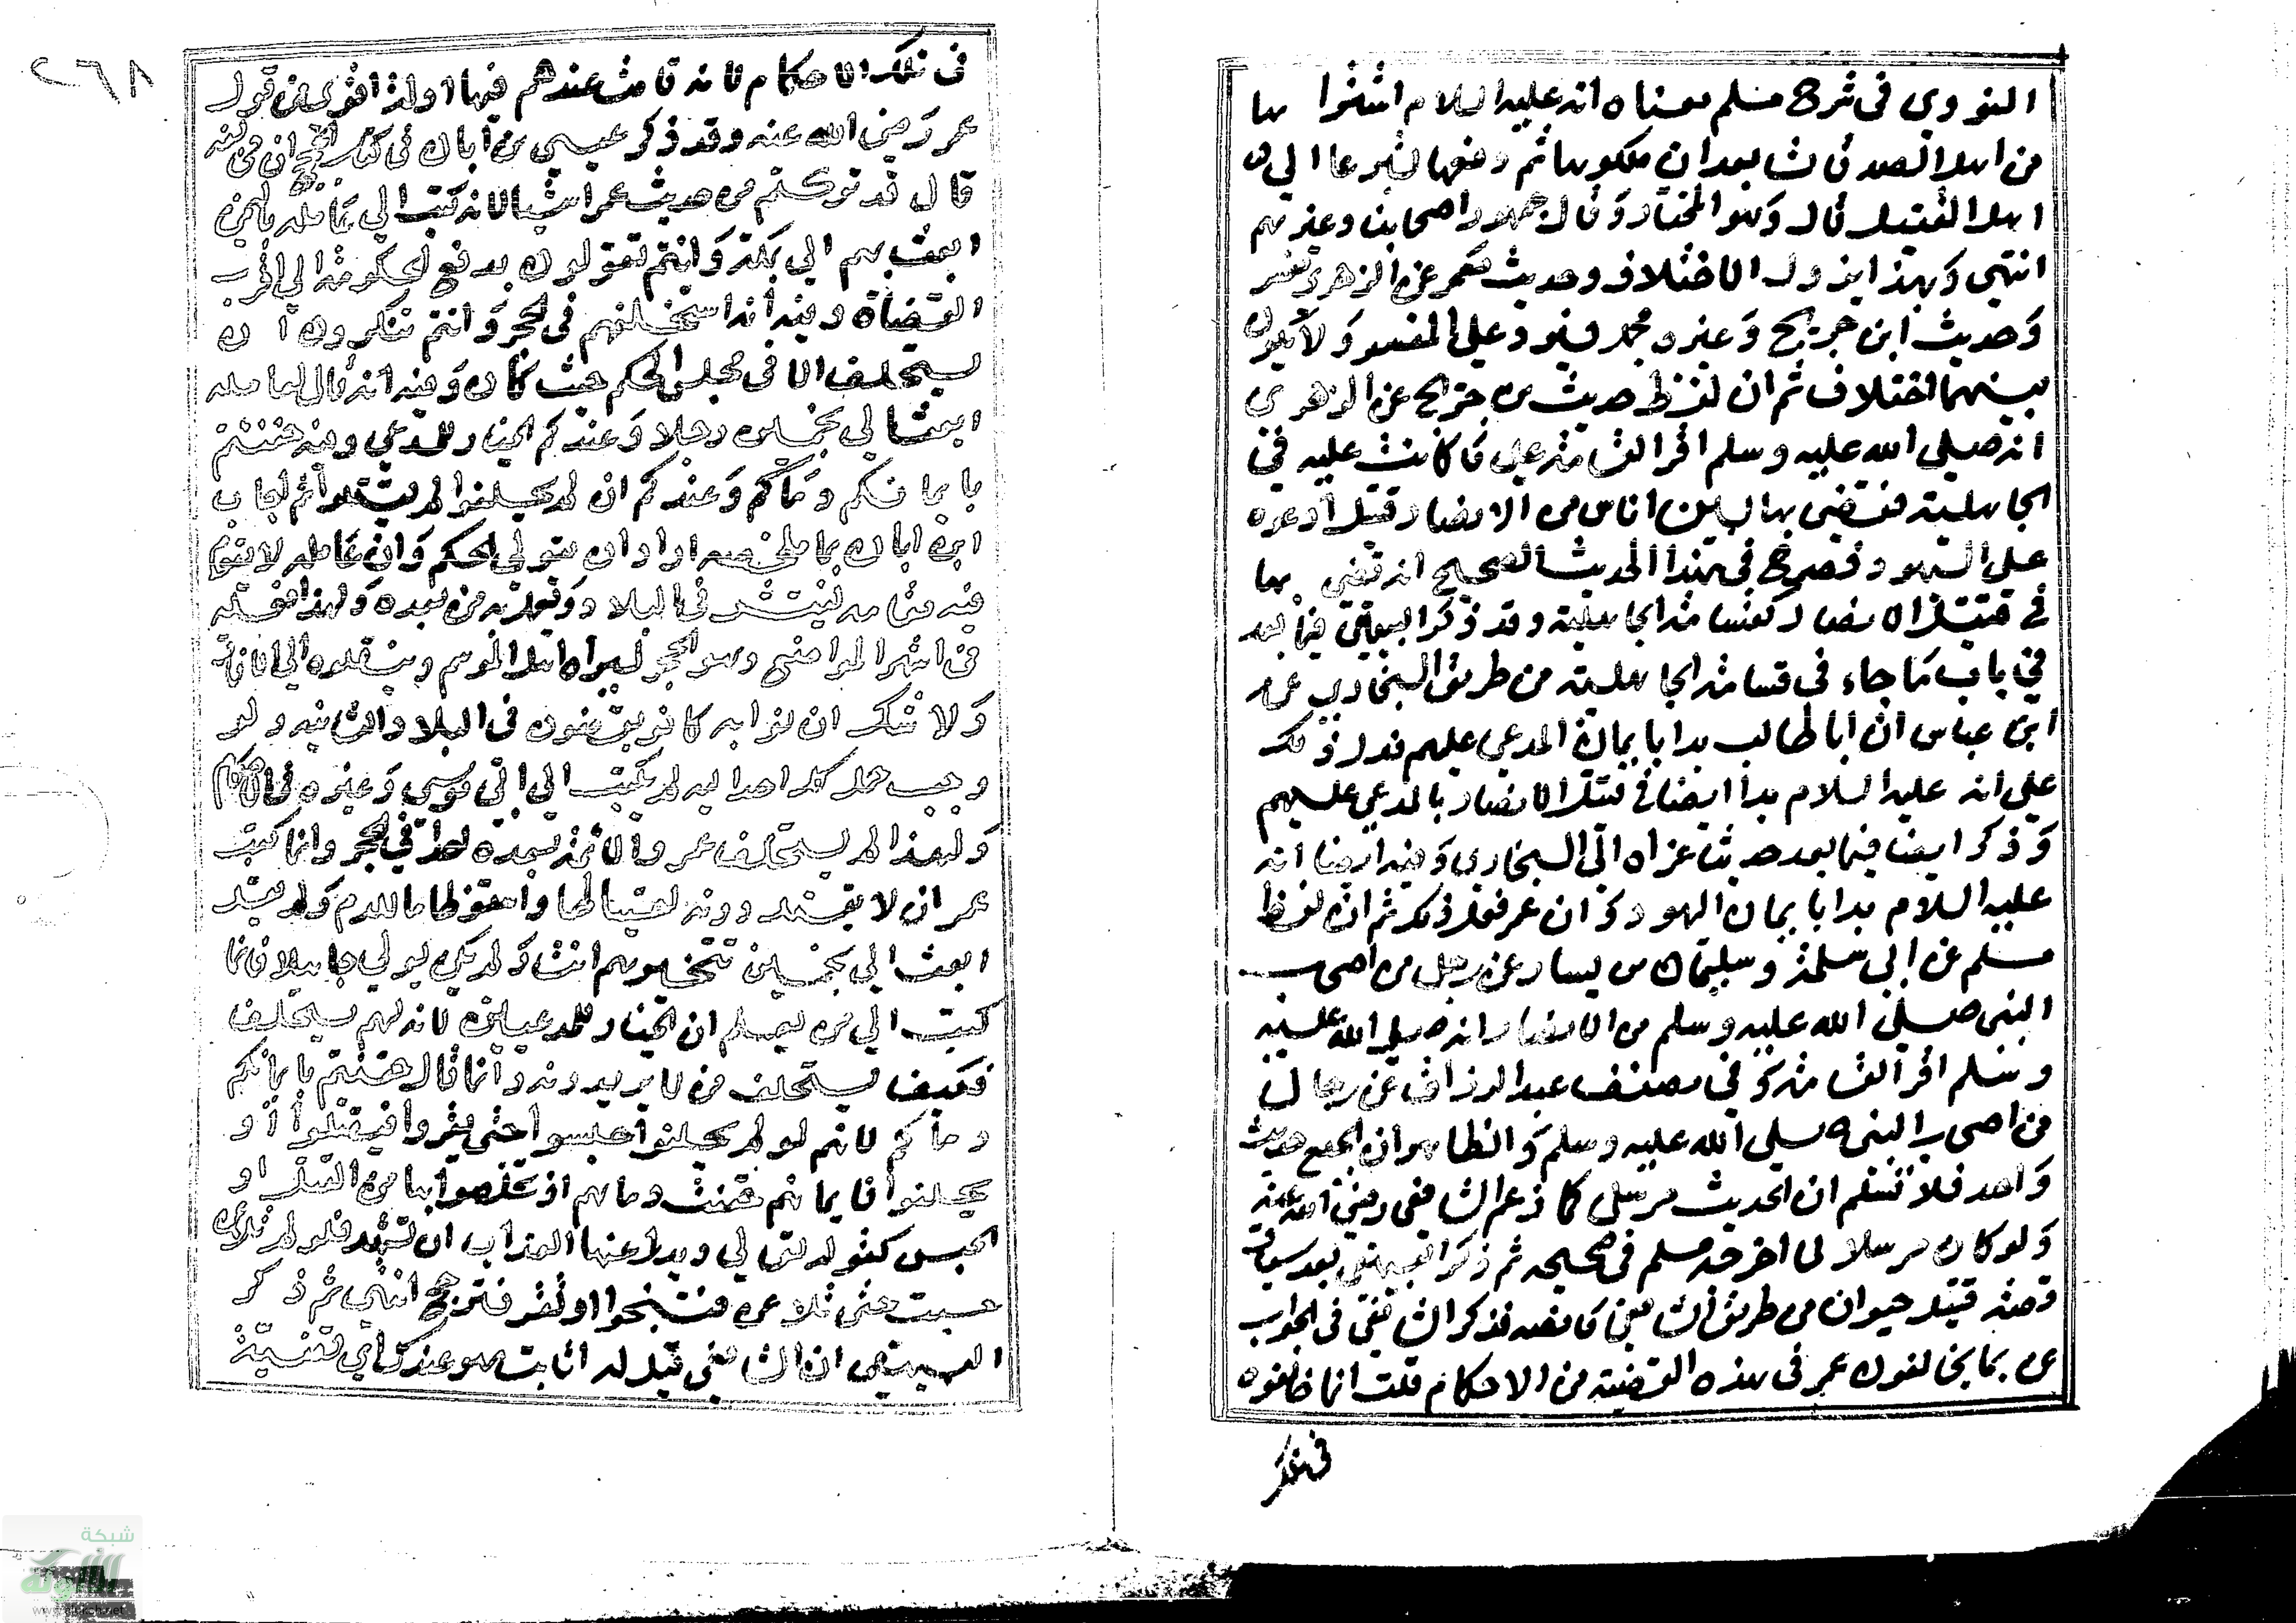 النووي في شرح مسلم معناه انه عليه السلام اشتراها
من اهل الصدقات بعد ان ملكوها ثم دفعها تبرعا الى
اهل القتيل قال وهو المختار وقال جمهور اصحابنا وغيرهم
انتهى وبهذا يزول الاختلاف وحديث معمر عن الزهري مفسر
وحديث ابن جريج وغيره مجمل فيرد على المفسر ولا يكون
بينهما اختلاف ثم ان لفظ حديث بن جريج عن الزهري
انه صلى الله عليه وسلم اقر القسامة على ما كانت عليه في
الجاهلية فقضى بها بين اناس من الانصار قتيل ادعوه
على اليهود فصرح في هذا الحديث الصحيح انه قضى بها
في قتيل الانصار كقسامة الجاهلية وقد ذكر البيهقي فيما بعد
في باب ما جاء في قسامة الجاهلية من طريق البخاري عن
ابن عباس ان ابا طالب بدا بايمان المدعي عليهم فدل ذلك
علي انه عليه السلام بدا ايضا في قتيل الانصار بالمدعي عليهم
وذكر ايضا فيما بعد حديثا عزاه الى البخاري وفيه ايضا انه
عليه السلام بدا بايمان اليهود وان عمر فعل ذلك ثم ان لفظ
مسلم عن ابي سلمة وسليمان بن يسار عن رجل من اصحاب
النبي صلى الله عليه وسلم من الانصار انه صلى الله عليه
وسلم اقر القسامة وفي مصنف عبد الرزاق عن رجال
من اصحاب النبي صلى الله عليه وسلم والظاهر ان الجميع حديث
واحد فلا نسلم ان الحديث مرسل كما زعم الشافعي رضي الله عنه
ولو كان مرسلا لما اخرجه مسلم في صحيحه ثم ذكر البيهقي بعد سياقة
قصة قتيل حيوان من طريق الشافعي ما نصه فذكر الشافعي في الجواب
عن بما يخالفون عمر في هذه القضية من الاحكام قلت انما خالفوه
في تلك
٢٦٨
في تلك الاحكام لانه قامت عندهم فيها ادلة اقوى من قول
عمر رضي الله عنه وقد ذكر عيسى بن ابان في كتاب الحج ان مخالفه
قال قد تركتم من حديث عمر اشيا لانه كتب الى عامله باليمن
ابعث بهم الي بمكة وانتم تقولون يدفع الحكومة الى اقرب
القضاة وفيه انه استحلفهم في الحجر وانتم تنكرون ان
يستحلف الا في مجلس الحكم حيث كان وفيه انه قال لعامله
ابعث الي بخمسين رجلا وعندكم الخيار للمدعي وفيه حقنتم
بايمانكم دماكم وعندكم ان لم يحلفوا لم يقتلوا ثم اجاب
ابن ابان بما ملخصه اراد ان يتولى الحكم وان عامله لا يقوم
فيه مقامه لينتشر في البلاد ويعمل به من بعده ولهذا فعله
في اشهر المواضع وهو الحجر ليراه اهل الموسم وينقلوه الى الافاق
ولا شك ان نوابه كانو يقضون في البلاد والنائيه ولو
وجب حمل كل احد اليه لم يكتب الى ابي موسى وغيره في الاحكام
ولهذا لم يستحلف عمر والايمة بعده احد في الحجر وانما كتب
عمر ان لا يقتل دونه احتياطا واستعظاما للدم ولم يقل
ابعث الي بخمسين تتخيرهم انت ولم يكن يولي جاهلا فانما
كتب الى من يعلم ان الخيار للمدعيين لانه لهم يستحلف
فكيف يستحلف من لا يريدونه وانما قال حقنتم بايمانكم
دماكم لانهم لو لم يحلفوا حبسوا حتى يقروا فيقتلوا او
يحلفوا فايمانهم حقنت دماهم اذ تخلصوا بها من القتل او
الحبس كقوله تعالى ويدرا عنها العذاب ان تشهد فلو لم تلاعن
حبست حتى تلاعن فتنجوا او تقر فترجم انتهى ثم ذكر
البيهقي ان الشافعي قيل له اثابت هو عندك اي قضية